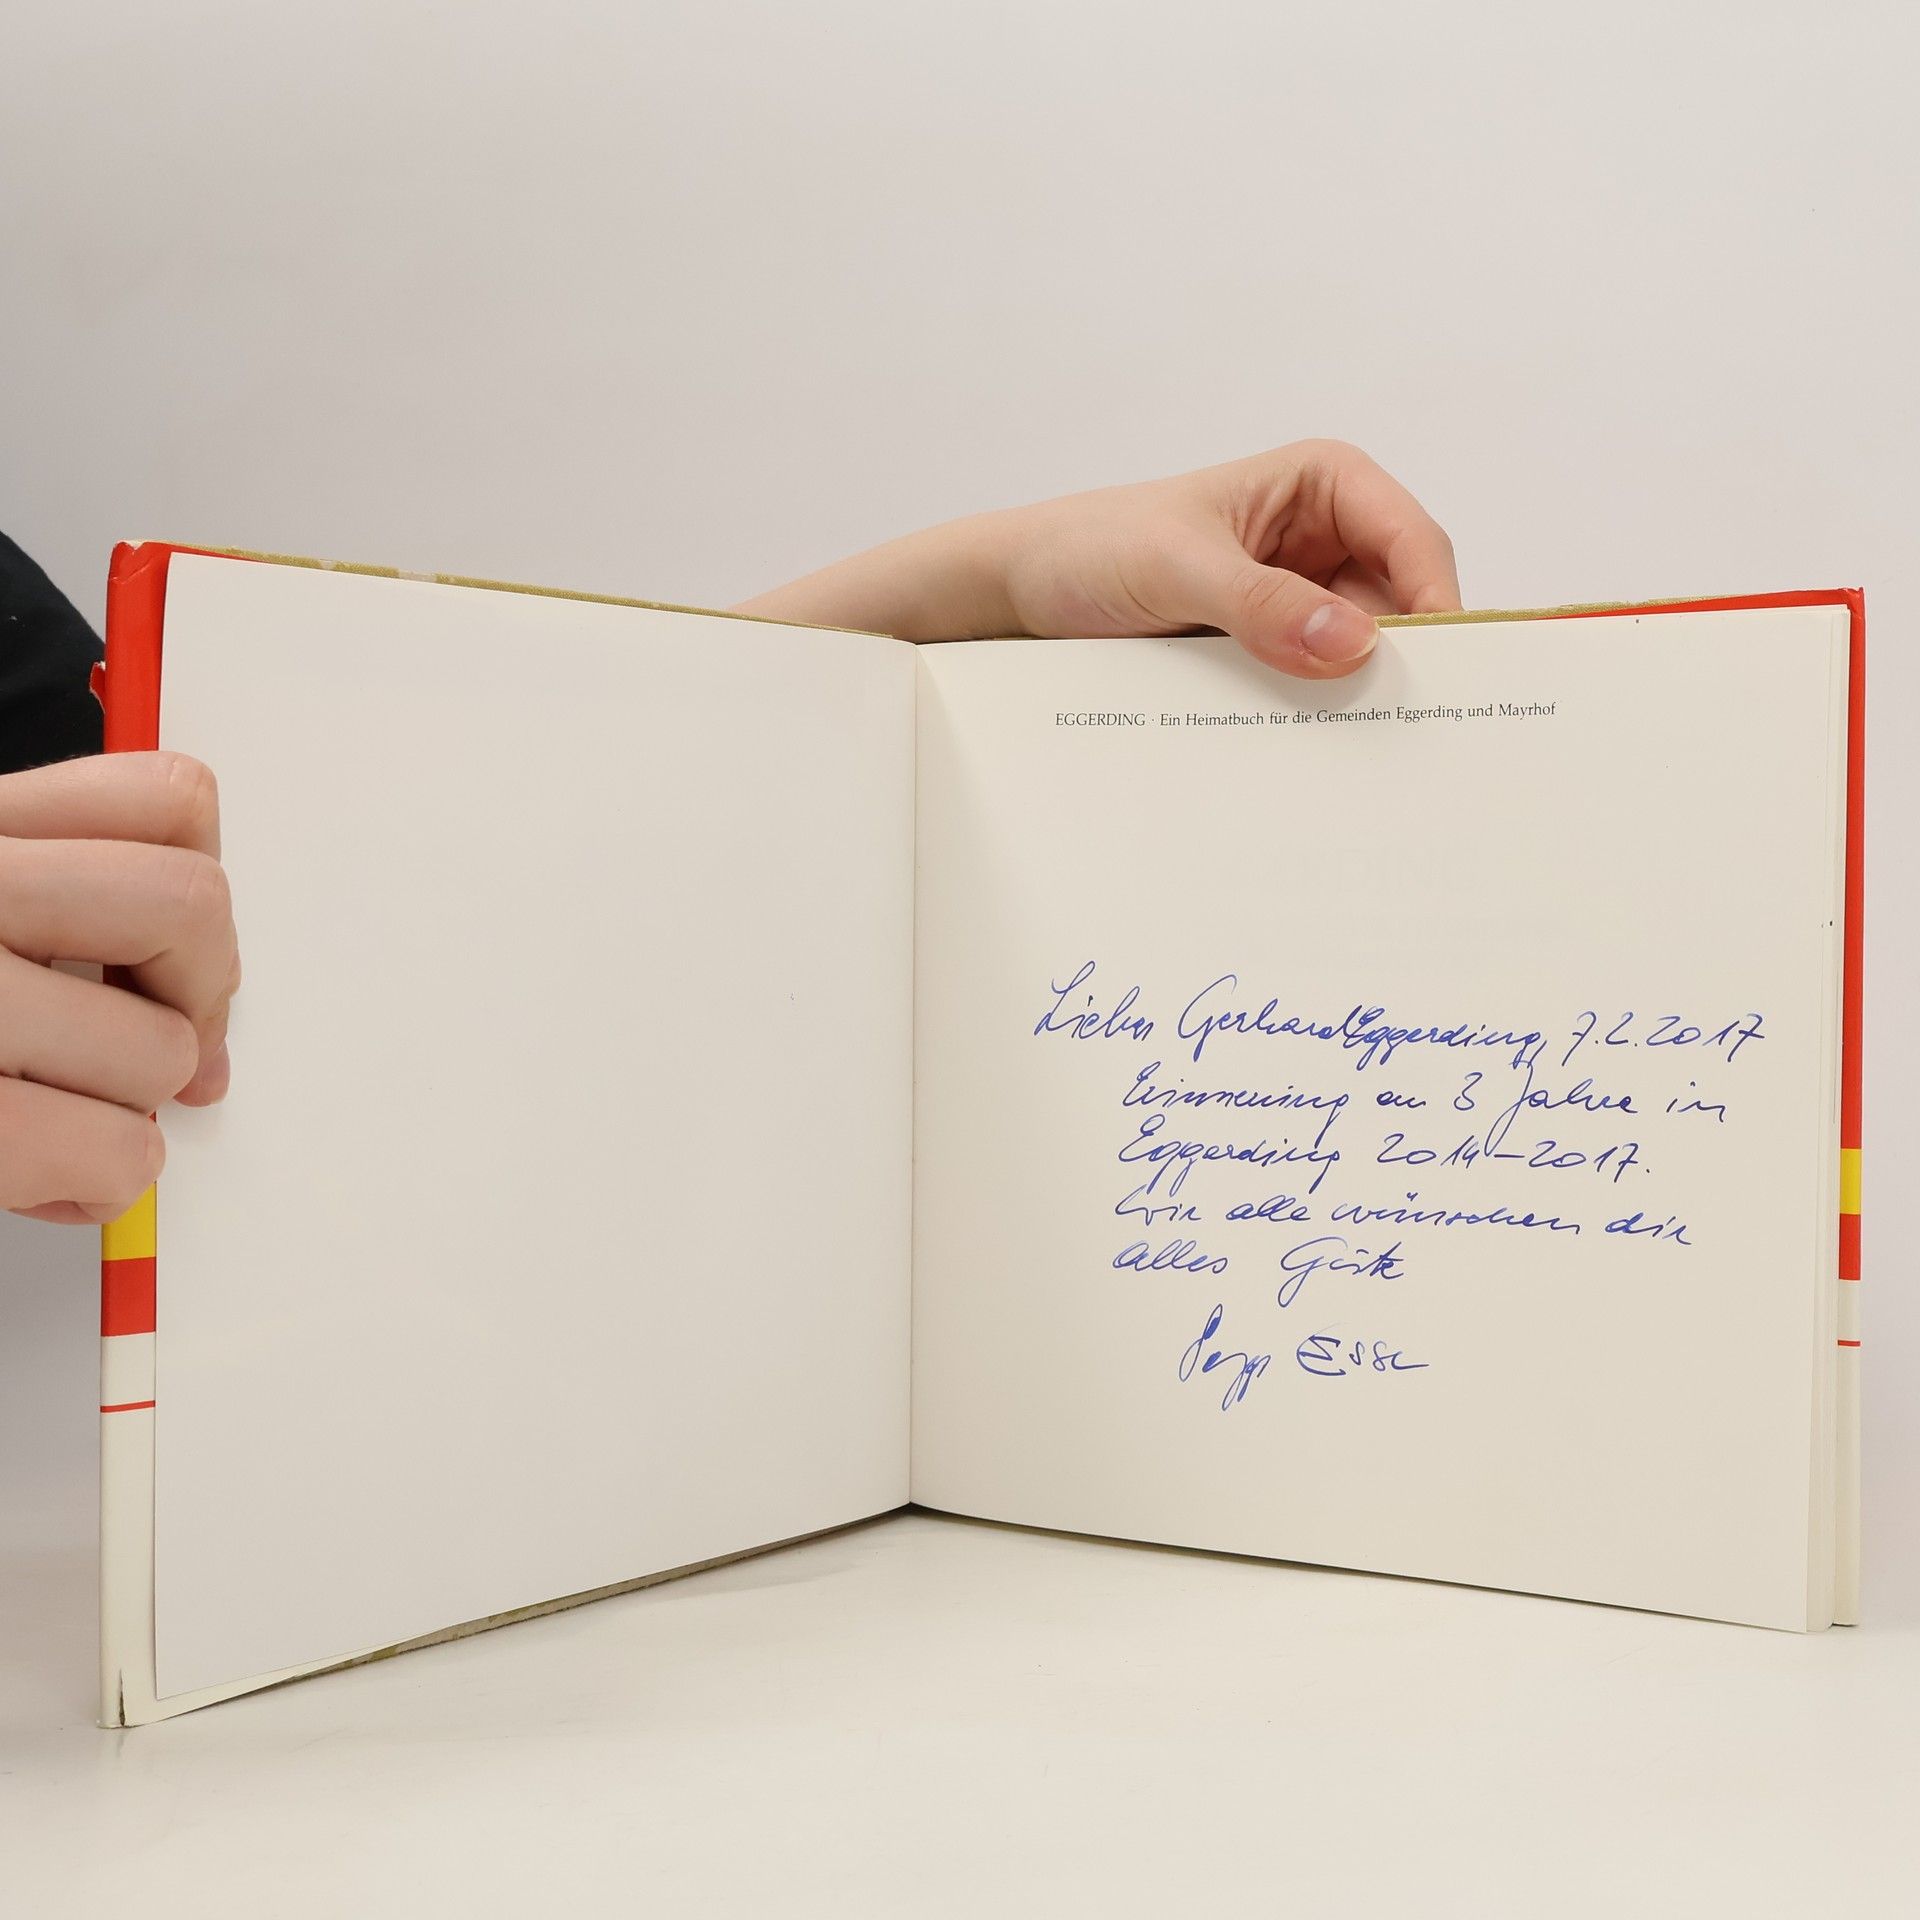 EGGERDING · Ein Heimatbuch für die Gemeinden Eggerding und Mayrhof
Lieber Gerhard Eggerding, 7.2.2017
Erinnerung an 3 Jahre in
Eggerding 2014-2017.
Wir alle wünschen dir
alles Gute
Sepp